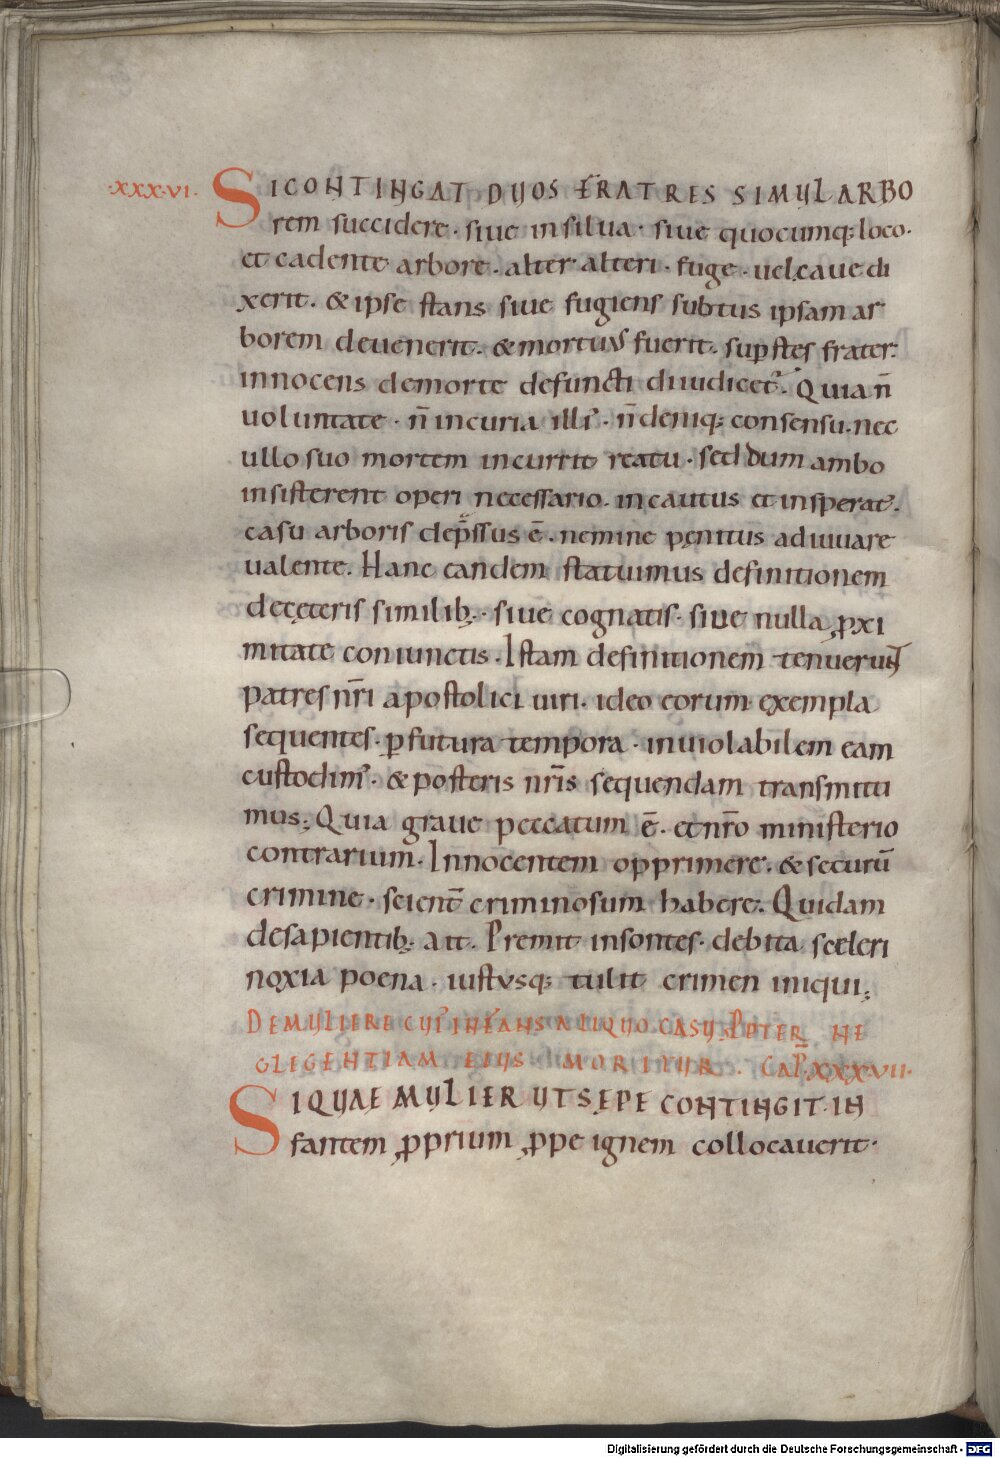 ·XXX·VI· SI CONTINGAT DUOS FRATRES SIMUL ARBO
rem succidere · siue in silua · siue quocumq; loco·
et cadente arbore · alter alteri · fuge · uel caue di
xerit · & ipse stans siue fugiens subtus ipsam ar
borem deuenerit · & mortuus fuerit · supstes frater
innocens de morte defuncti diiudicet᷑ · Quia n̄
uoluntate · n̄ incuria illi᾽ · n̄ deniq; consensu · nec
ullo suo mortem incurrit reatu · sed dum ambo
insisterent operi necessario · incautus et insperat᾽
casu arboris dep̄ssus ē · nemine penitus adiuuare
ualente · Hanc eandem statuimus definitionem
de cęteris similib; · siue cognatis · siue nulla ꝓxi
mitate coniunctis · Istam definitionem tenuerunt
patres nr̄i apostolici uiri · ideo eorum exempla
sequentes · ꝑ futura tempora · inuiolabilem eam
custodim᾽ · & posteris nr̄is sequendam transmitti
mus; Quia graue peccatum ē · et nr̄o ministerio
contrarium · Innocentem opprimere · & securū
crimine · scient̄ criminosum habere · Quidam
de sapientib; ait · Premit insontes · debita sceleri
noxia poena · iustusq; tulit crimen iniqui;
DE MULIERE CUI᾽ INFANS ALIQUO CASU PPTER NE
GLIGENTIAM EIUS MORITUR · CAP̄ XXXVII·
SI QUAE MULIER UT SEPE CONTINGIT · IN
fantem ꝓprium ꝓpe ignem collocauerit·
Digitalisierung gefördert durch die Deutsche Forschungsgemeinschaft · DFG